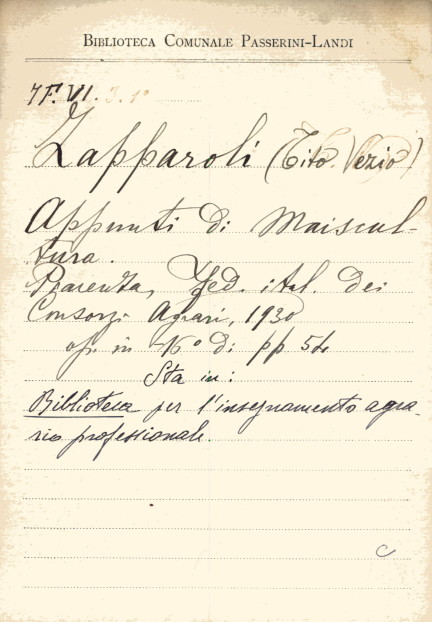 BIBLIOTECA COMUNALE PASSERINI-LANDI
7F.VI. 3.1º
Zapparoli (Tito Vezio)
Appunti di Maiscol-
tura.
Piacenza, Fed. ital. dei
Consorzi Agrari, 1930
op. in 16º di pp 54
Sta in:
Biblioteca per l'insegnamento agra-
rio professionale.
C